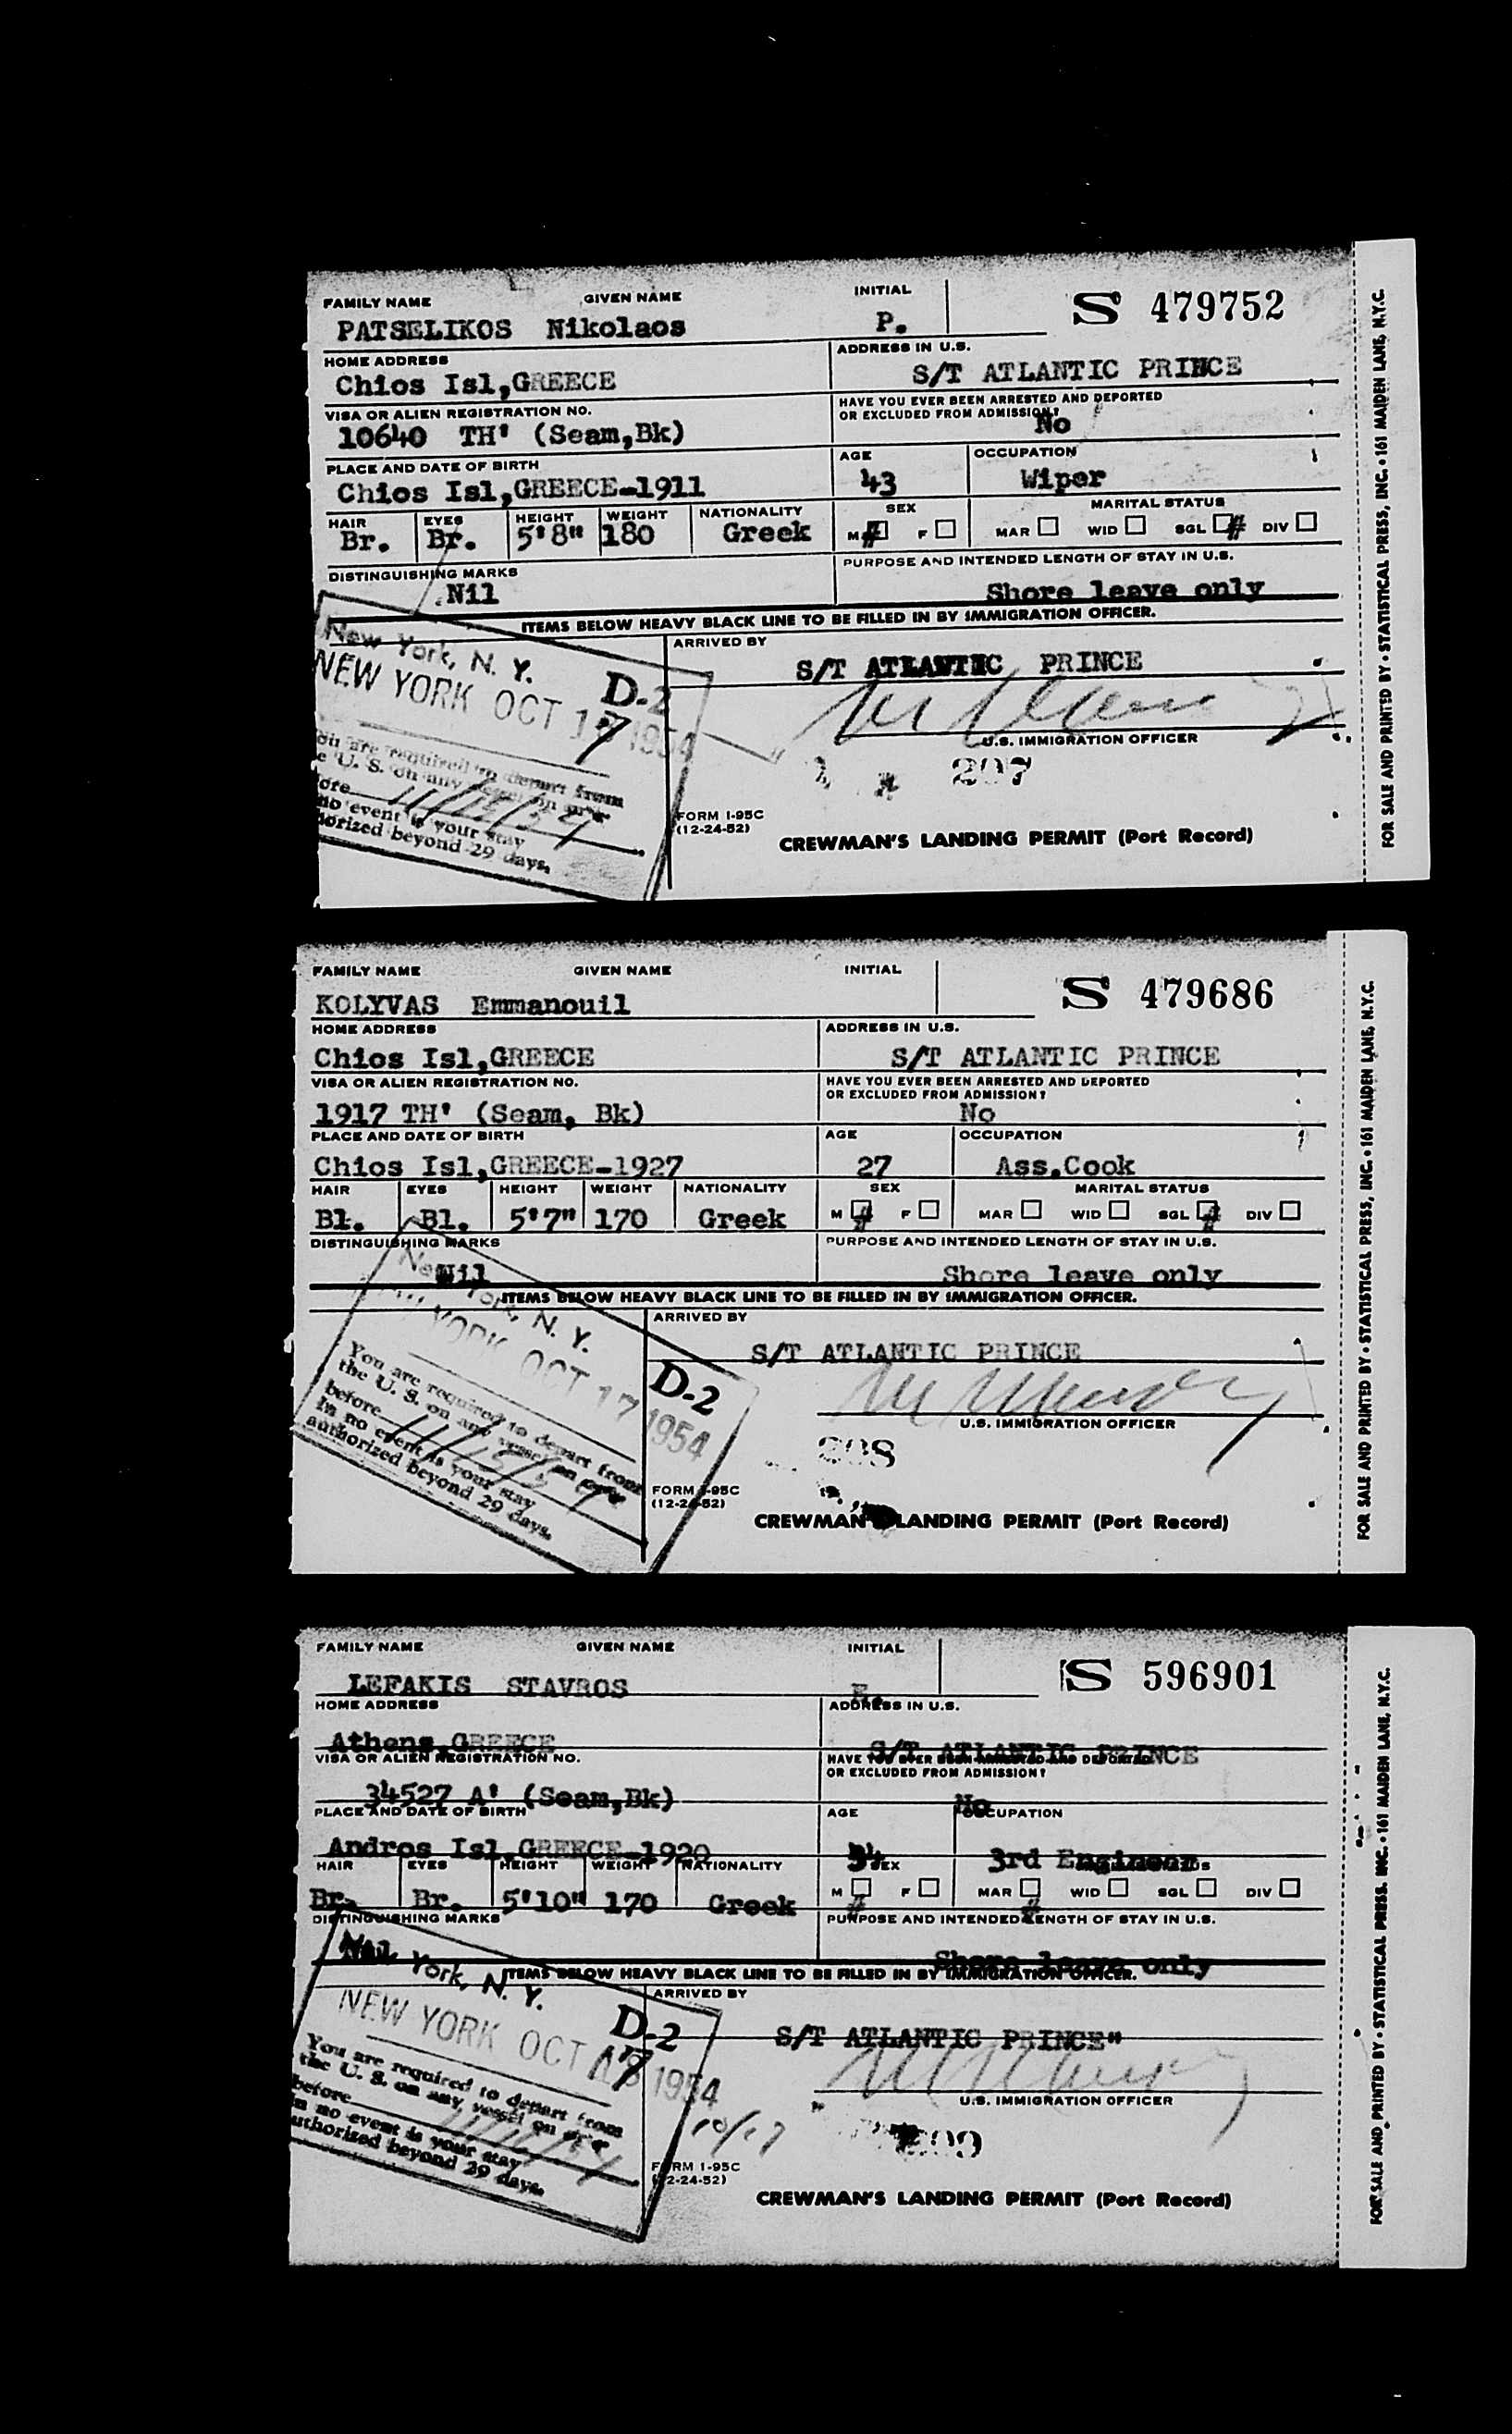 FAMILY NAME GIVEN NAME INITIAL S 479752
PATSELIKOS Nikolaos P.
HOME ADDRESS ADDRESS IN U.S.
Chios Isl,GREECE S/T ATLANTIC PRINCE
VISA OR ALIEN REGISTRATION NO. HAVE YOU EVER BEEN ARRESTED AND DEPORTED
OR EXCLUDED FROM ADMISSION?
10640 TH' (Seam,Bk) No
PLACE AND DATE OF BIRTH AGE OCCUPATION
Chios Isl,GREECE-1911 43 Wiper
HAIR EYES HEIGHT WEIGHT NATIONALITY SEX MARITAL STATUS
Br. Br. 5'8" 180 Greek M # F MAR WID SGL # DIV
DISTINGUISHING MARKS PURPOSE AND INTENDED LENGTH OF STAY IN U.S.
Nil Shore leave only
ITEMS BELOW HEAVY BLACK LINE TO BE FILLED IN BY IMMIGRATION OFFICER.
ARRIVED BY
S/T ATLANTIC PRINCE
New York, N. Y.
D-2
NEW YORK OCT 17 1954
You are required to depart from
the U. S. on any vessel on or
before 11/15/54
in no event is your stay
authorized beyond 29 days.
U.S. IMMIGRATION OFFICER
207
FORM I-95C
(12-24-52)
CREWMAN'S LANDING PERMIT (Port Record)
FOR SALE AND PRINTED BY • STATISTICAL PRESS, INC. • 161 MAIDEN LANE, N.Y.C.
FAMILY NAME GIVEN NAME INITIAL S 479686
KOLYVAS Emmanouil
HOME ADDRESS ADDRESS IN U.S.
Chios Isl,GREECE S/T ATLANTIC PRINCE
VISA OR ALIEN REGISTRATION NO. HAVE YOU EVER BEEN ARRESTED AND DEPORTED
OR EXCLUDED FROM ADMISSION?
1917 TH' (Seam, Bk) No
PLACE AND DATE OF BIRTH AGE OCCUPATION
Chios Isl,GREECE-1927 27 Ass.Cook
HAIR EYES HEIGHT WEIGHT NATIONALITY SEX MARITAL STATUS
Bl. Bl. 5'7" 170 Greek M # F MAR WID SGL # DIV
DISTINGUISHING MARKS PURPOSE AND INTENDED LENGTH OF STAY IN U.S.
Nil Shore leave only
ITEMS BELOW HEAVY BLACK LINE TO BE FILLED IN BY IMMIGRATION OFFICER.
ARRIVED BY
S/T ATLANTIC PRINCE
New York, N. Y.
D-2
NEW YORK OCT 17 1954
You are required to depart from
the U. S. on any vessel on or
before 11/15/54
In no event is your stay
authorized beyond 29 days.
U.S. IMMIGRATION OFFICER
208
FORM I-95C
(12-24-52)
CREWMAN'S LANDING PERMIT (Port Record)
FOR SALE AND PRINTED BY • STATISTICAL PRESS, INC. • 161 MAIDEN LANE, N.Y.C.
FAMILY NAME GIVEN NAME INITIAL S 596901
LEFAKIS STAVROS
HOME ADDRESS ADDRESS IN U.S.
Athens,GREECE S/T ATLANTIC PRINCE
VISA OR ALIEN REGISTRATION NO. HAVE YOU EVER BEEN ARRESTED AND DEPORTED
OR EXCLUDED FROM ADMISSION?
34527 A' (Seam,Bk) No
PLACE AND DATE OF BIRTH AGE OCCUPATION
Andros Isl,GREECE-1920 34 3rd Engineer
HAIR EYES HEIGHT WEIGHT NATIONALITY SEX MARITAL STATUS
Br. Br. 5'10" 170 Greek M # F MAR # WID SGL DIV
DISTINGUISHING MARKS PURPOSE AND INTENDED LENGTH OF STAY IN U.S.
Nil Shore leave only
ITEMS BELOW HEAVY BLACK LINE TO BE FILLED IN BY IMMIGRATION OFFICER.
ARRIVED BY
S/T ATLANTIC PRINCE"
York, N. Y.
D-2
NEW YORK OCT 17 1954
You are required to depart from
the U. S. on any vessel on or
before 11/15/54
In no event is your stay
authorized beyond 29 days.
10/17
U.S. IMMIGRATION OFFICER
FORM I-95C
(12-24-52)
CREWMAN'S LANDING PERMIT (Port Record)
FOR SALE AND PRINTED BY • STATISTICAL PRESS, INC. • 161 MAIDEN LANE, N.Y.C.